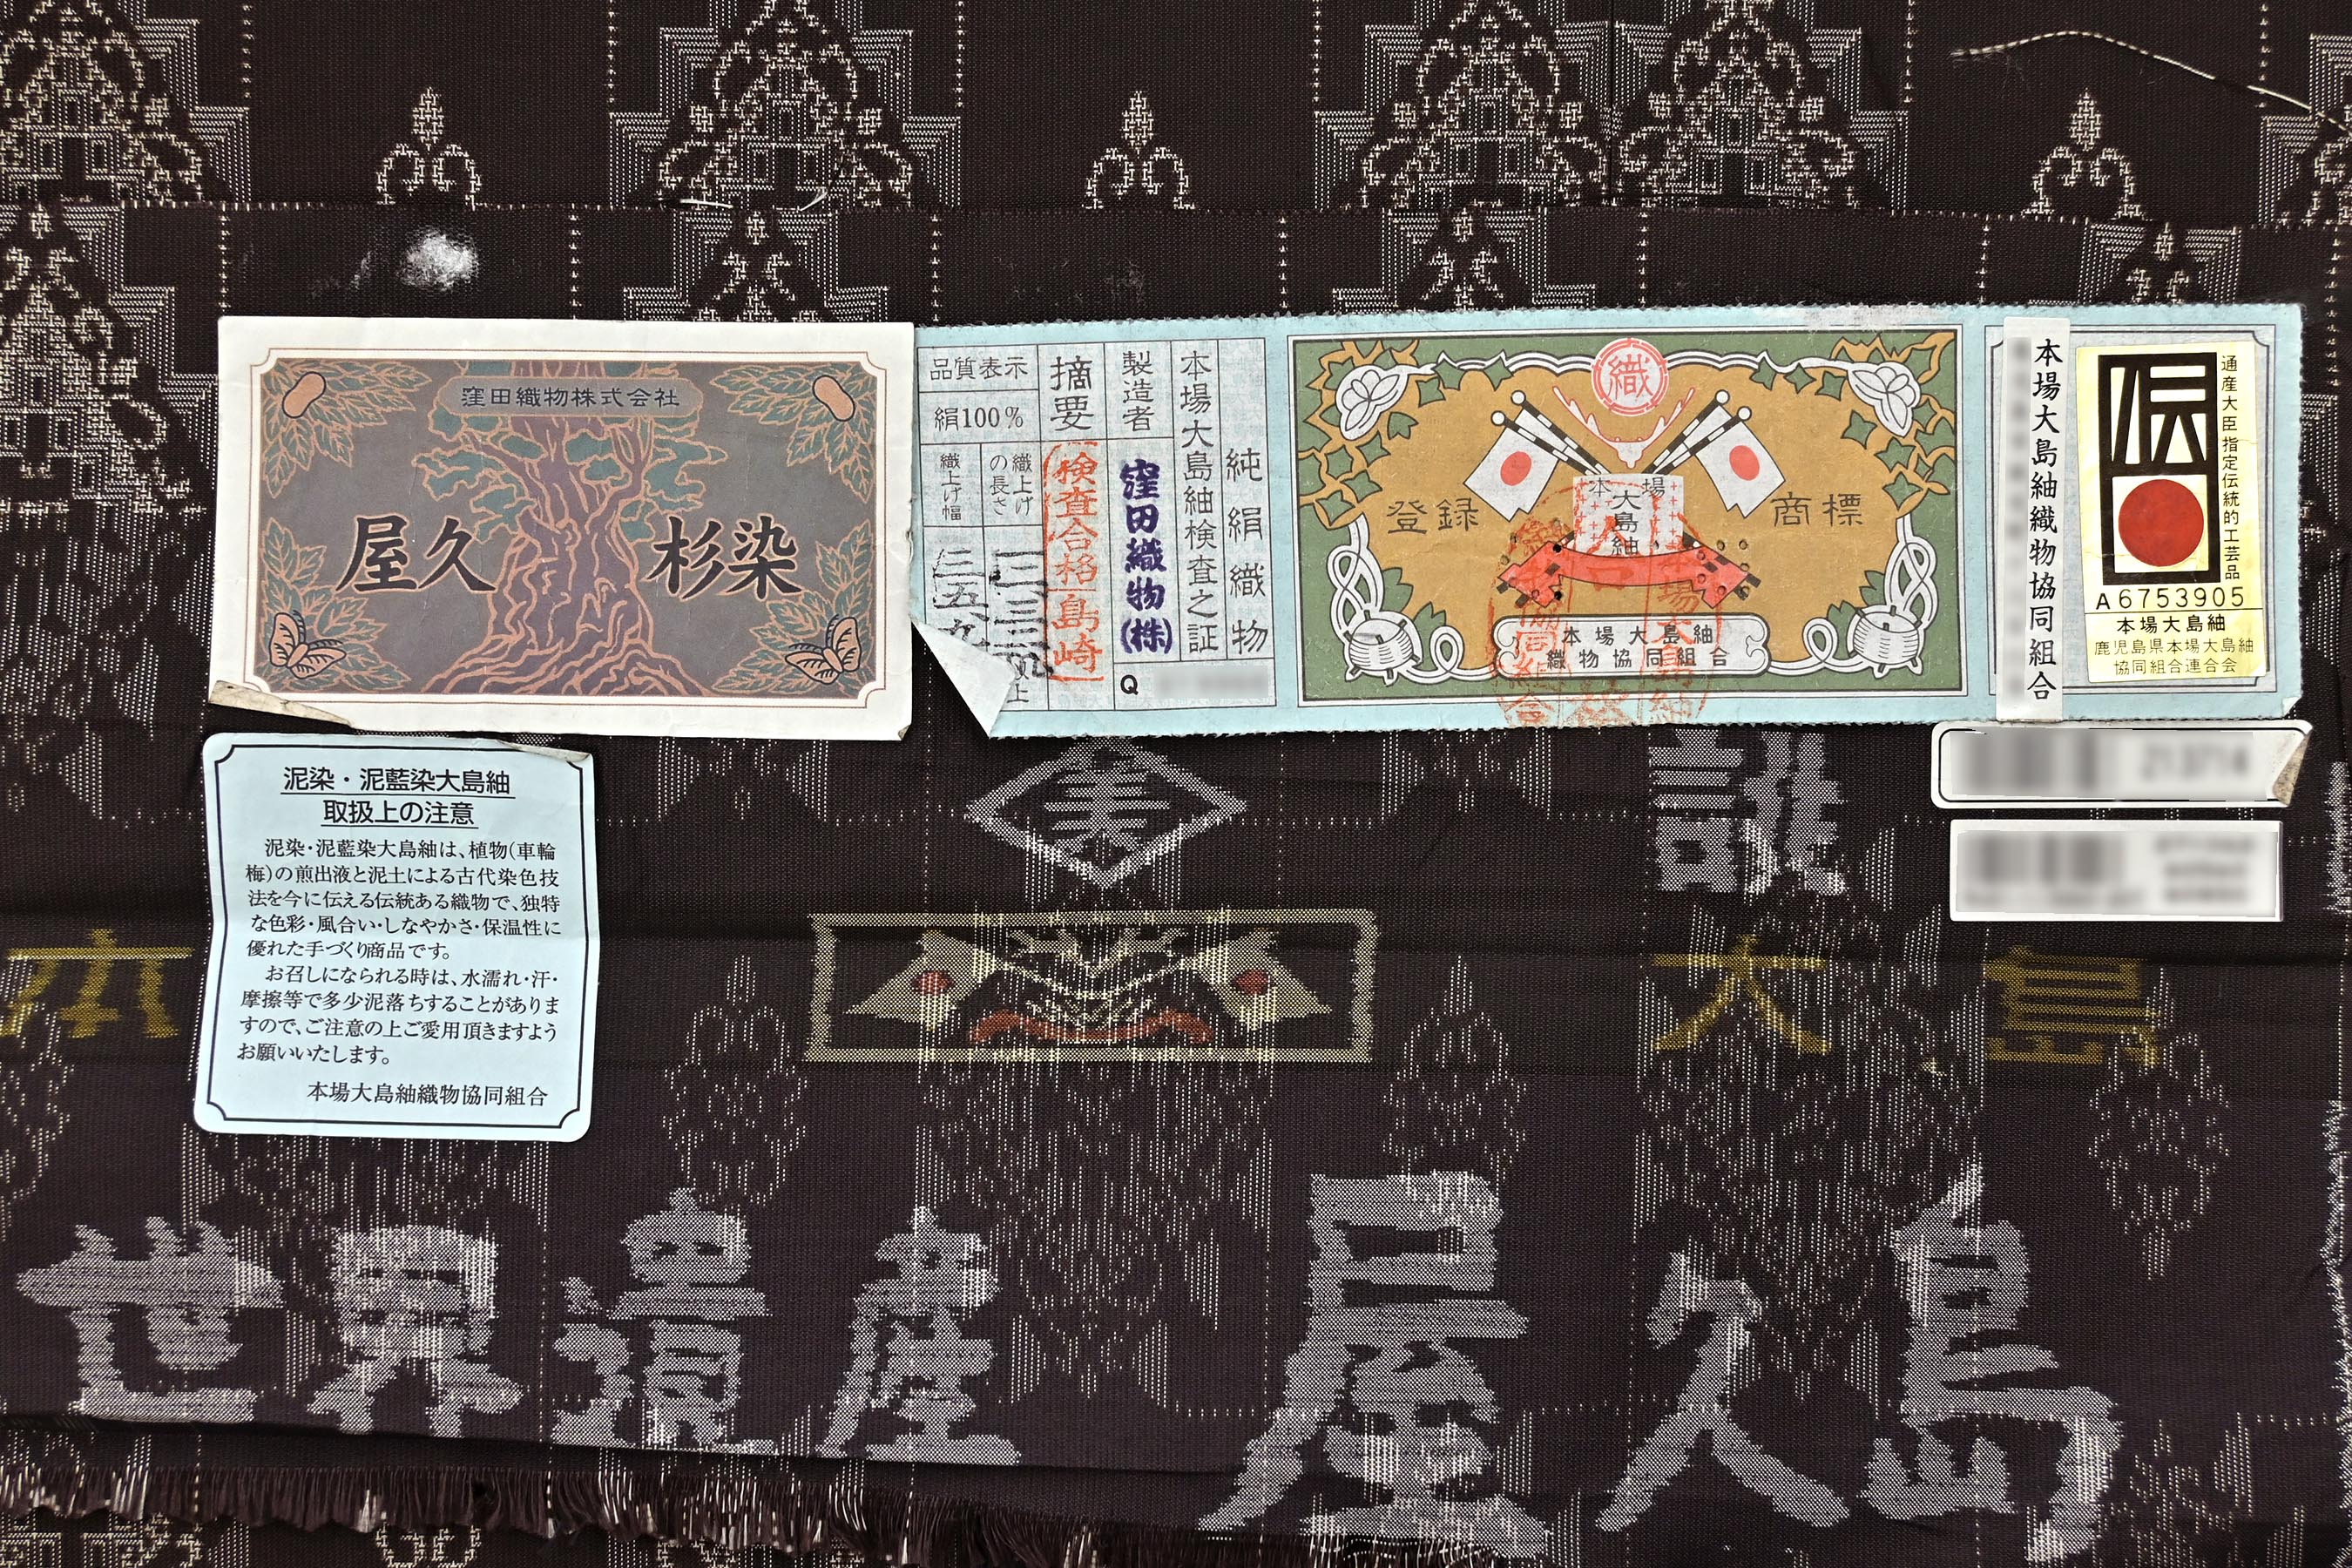 窪田織物株式会社
屋久杉染
品質表示
絹100%
織上げ
の長さ
織上げ幅
摘要
検査合格
島崎
製造者
窪田織物(株)
本場大島紬検査之証
純絹織物
Q
織
登録
商標
本場
大島紬
本場大島紬
織物協同組合
本場大島紬織物協同組合
伝
通産大臣指定伝統的工芸品
A6753905
本場大島紬
鹿児島県本場大島紬
協同組合連合会
泥染・泥藍染大島紬
取扱上の注意
泥染・泥藍染大島紬は、植物(車輪
梅)の煎出液と泥土による古代染色技
法を今に伝える伝統ある織物で、独特
な色彩・風合い・しなやかさ・保温性に
優れた手づくり商品です。
お召しになられる時は、水濡れ・汗・
摩擦等で多少泥落ちすることがありま
すので、ご注意の上ご愛用頂きますよう
お願いいたします。
本場大島紬織物協同組合
大島
世界遺産 屋久島